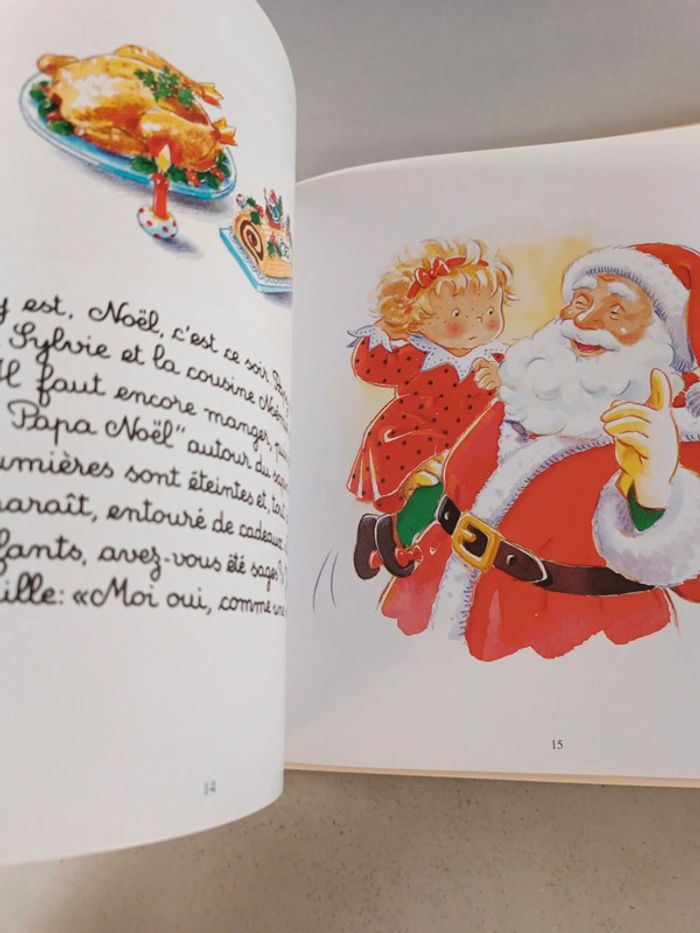 y est, Noël, c'est ce soir.
Sylvie et la cousine
Il faut encore manger,
Papa Noël" autour du
umières sont éteintes et,
araît, entouré de cadeaux
fants, avez-vous été sages
ille: «Moi oui, comme une
14
15